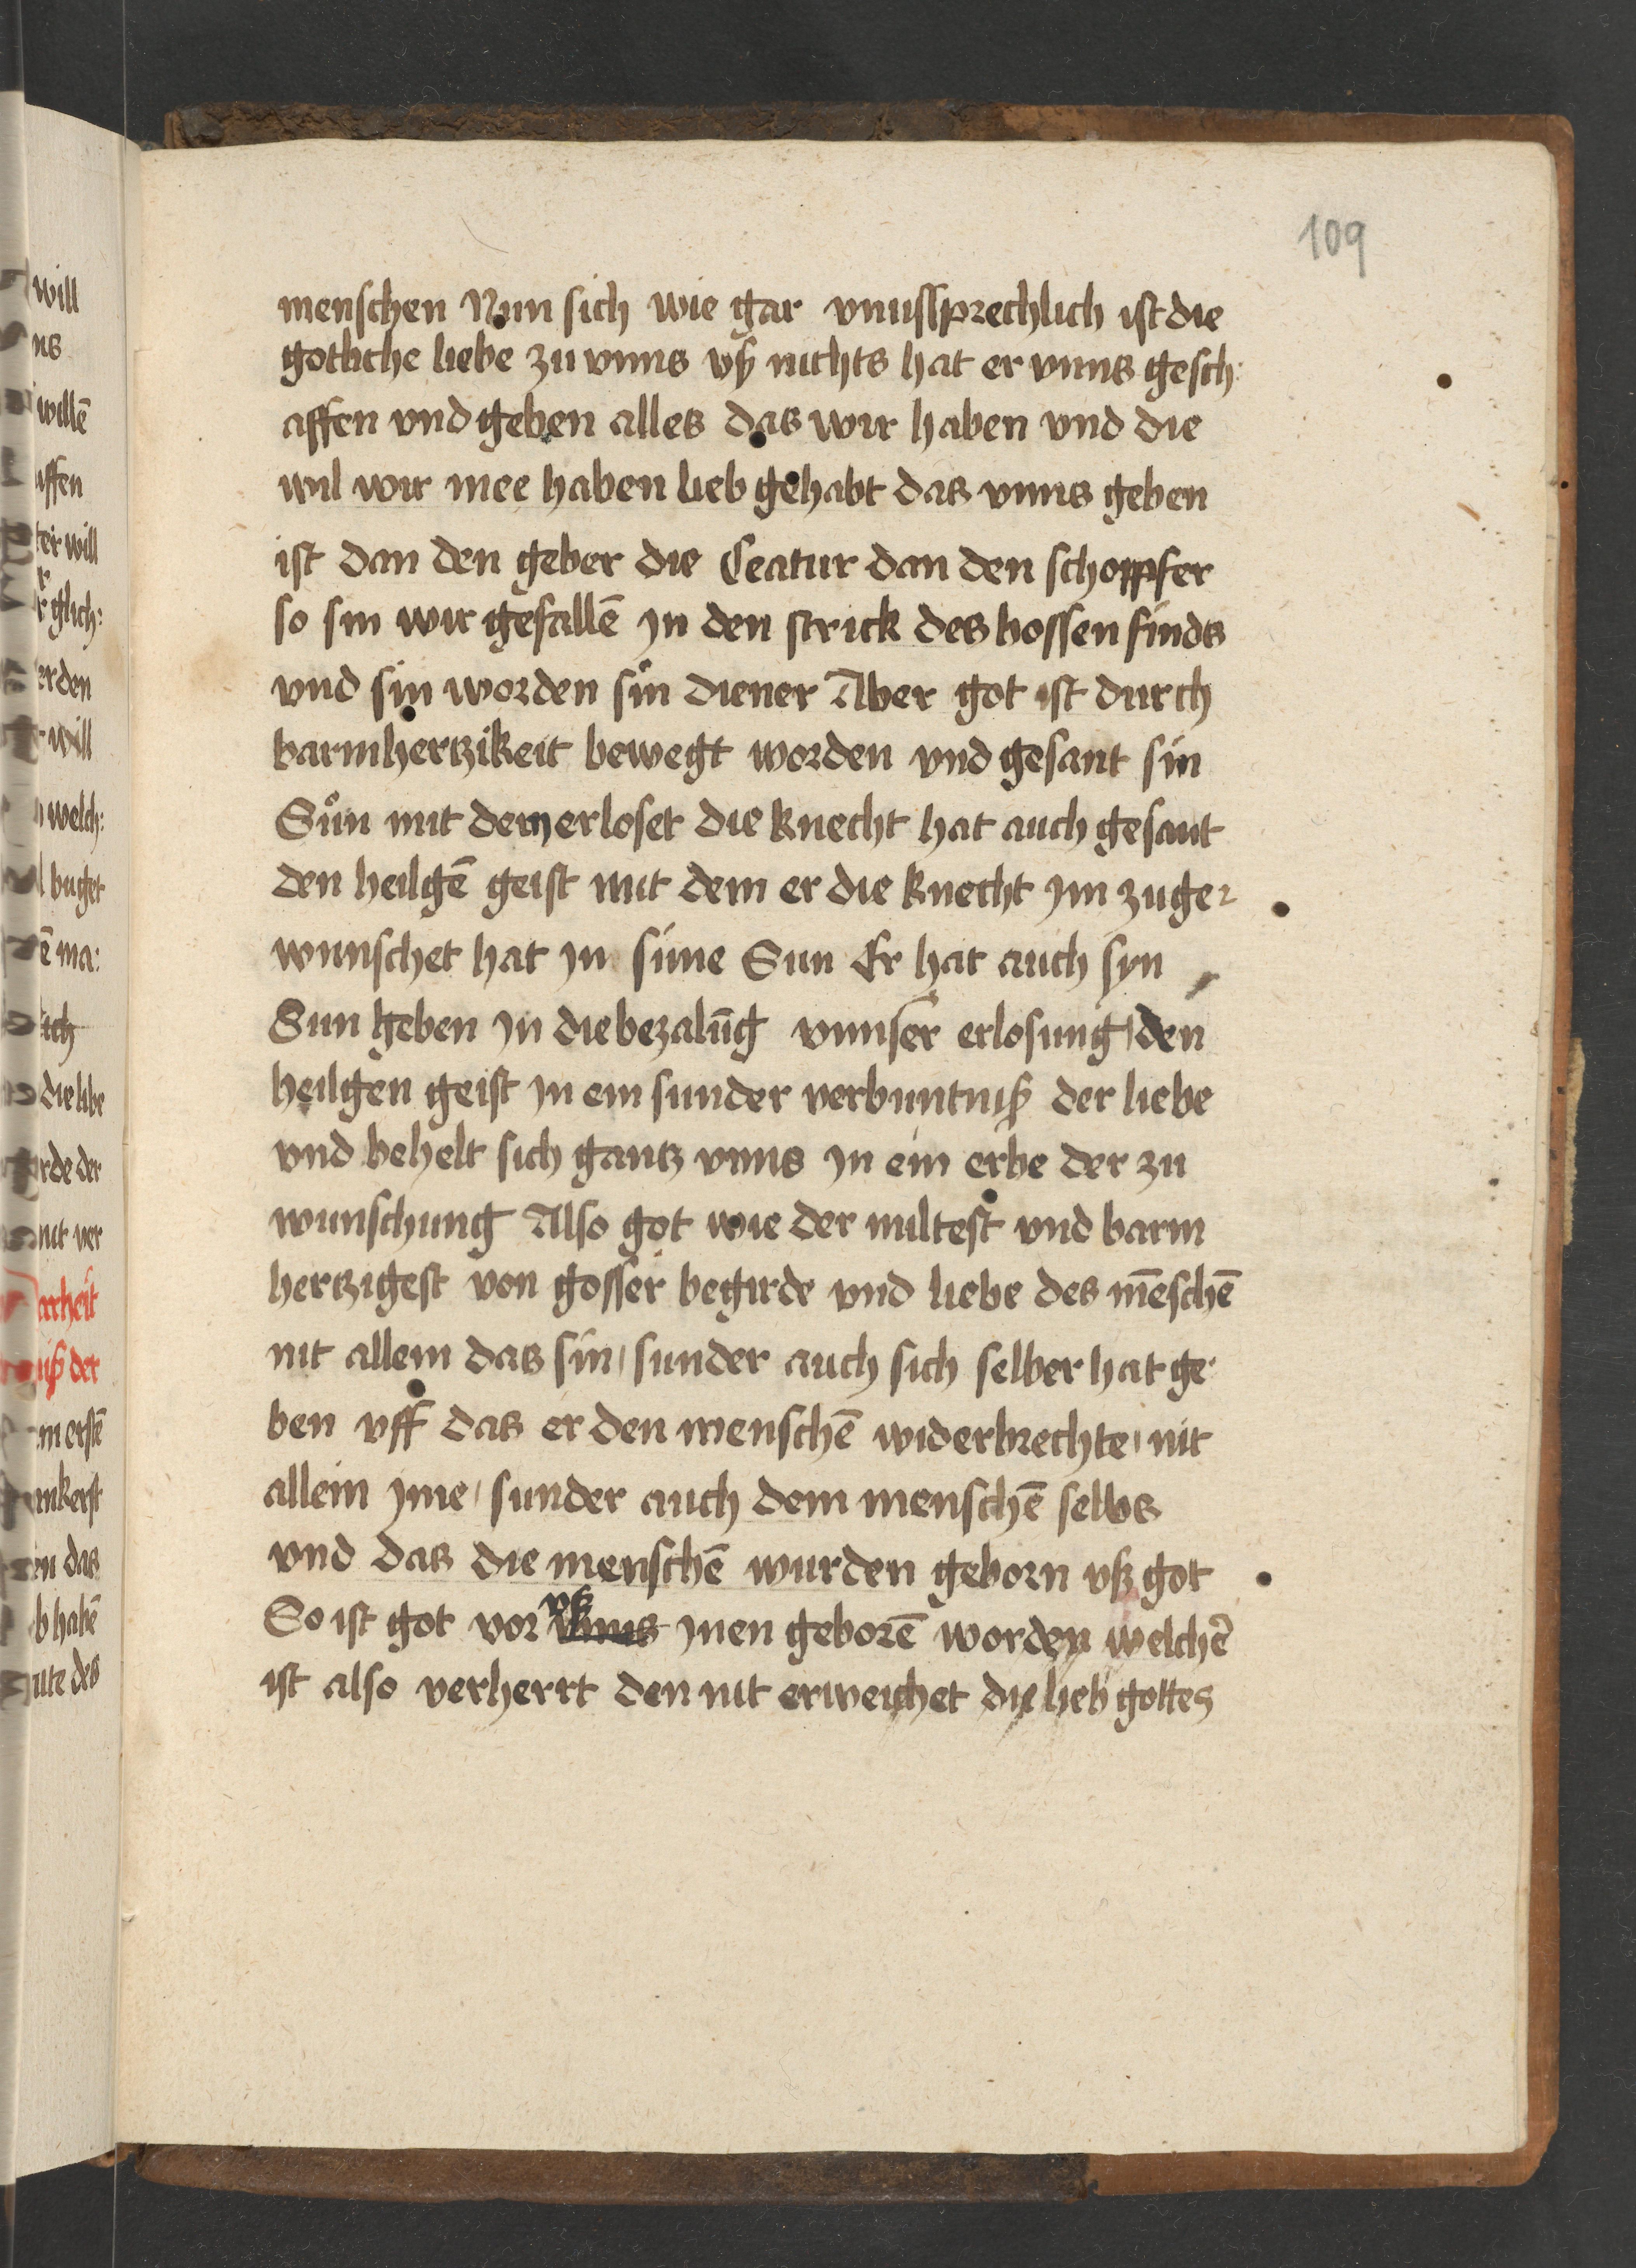 109
menschen Nun sich wie gar vnussprechlich ist die
gotliche liebe zu vnns vß nichts hat er vnns gesch:
affen vnd geben alles das wir haben vnd die
wil wir mee haben lieb gehabt das vnns geben
ist dan den geber die Ceatur dan den schoppfer
so sin wir gefallē in den strick des bossen finds
vnd sin worden sin diener Aber got ist durch
barmhertzikeit bewegt worden vnd gesant sin
Sůn mit dem erloset die knecht hat auch gesant
den heilgē geist mit dem er die knecht im zuge-
wunschet hat in sine Sun Er hat auch syn
Sun geben in die bezalūg vnnser erlosung den
heilgen geist in ein sunder verbuntniß der liebe
vnd behelt sich gantz vnns in ein erbe der zu
wunschung Also got wie der miltest vnd barm
hertzigest von gosser begirde vnd liebe des mēschē
nit allem das sin sunder auch sich selber hat ge
ben vff das er den menschē widerbrechte nit
allein ime sunder auch dem menschē selbs
vnd das die menschē wurden geborn vß got
So ist got vor vß inen geborē worden welchē
ist also verherrt den nit erweichet die lieb gottes
will
ns
willē
affen
ter will
r glich:
erden
r will
welch:
l buget
ē ma:
lich
die libe
rde der
nit ver
arheit
iß der
m erstē
mkerst
en das
b habē
ute des